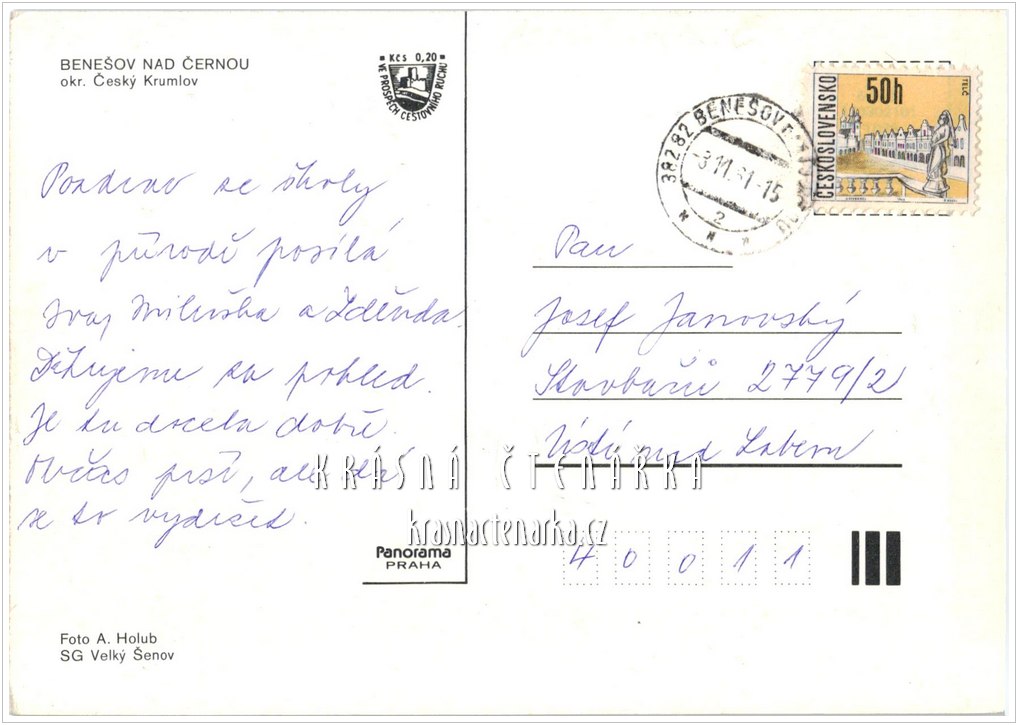 BENEŠOV NAD ČERNOU
okr. Český Krumlov
Kčs 0,20
VE PROSPĚCH CESTOVNÍHO RUCHU
382 82 BENEŠOV
-3.11.81-15
2
ČESKOSLOVENSKO
50h
TELČ
Pozdrav ze školy
v přírodě posílá
Miluška a Zdeňda.
Děkujeme za pohled.
Je tu docela dobře.
Občas prší, ale dá
se to vydržet.
Pan
Josef Janovský
Stavbařů 2779/2
Ústí nad Labem
KRÁSNÁ ČTENÁŘKA
krasnactenarka.cz
40011
Panorama
PRAHA
Foto A. Holub
SG Velký Šenov